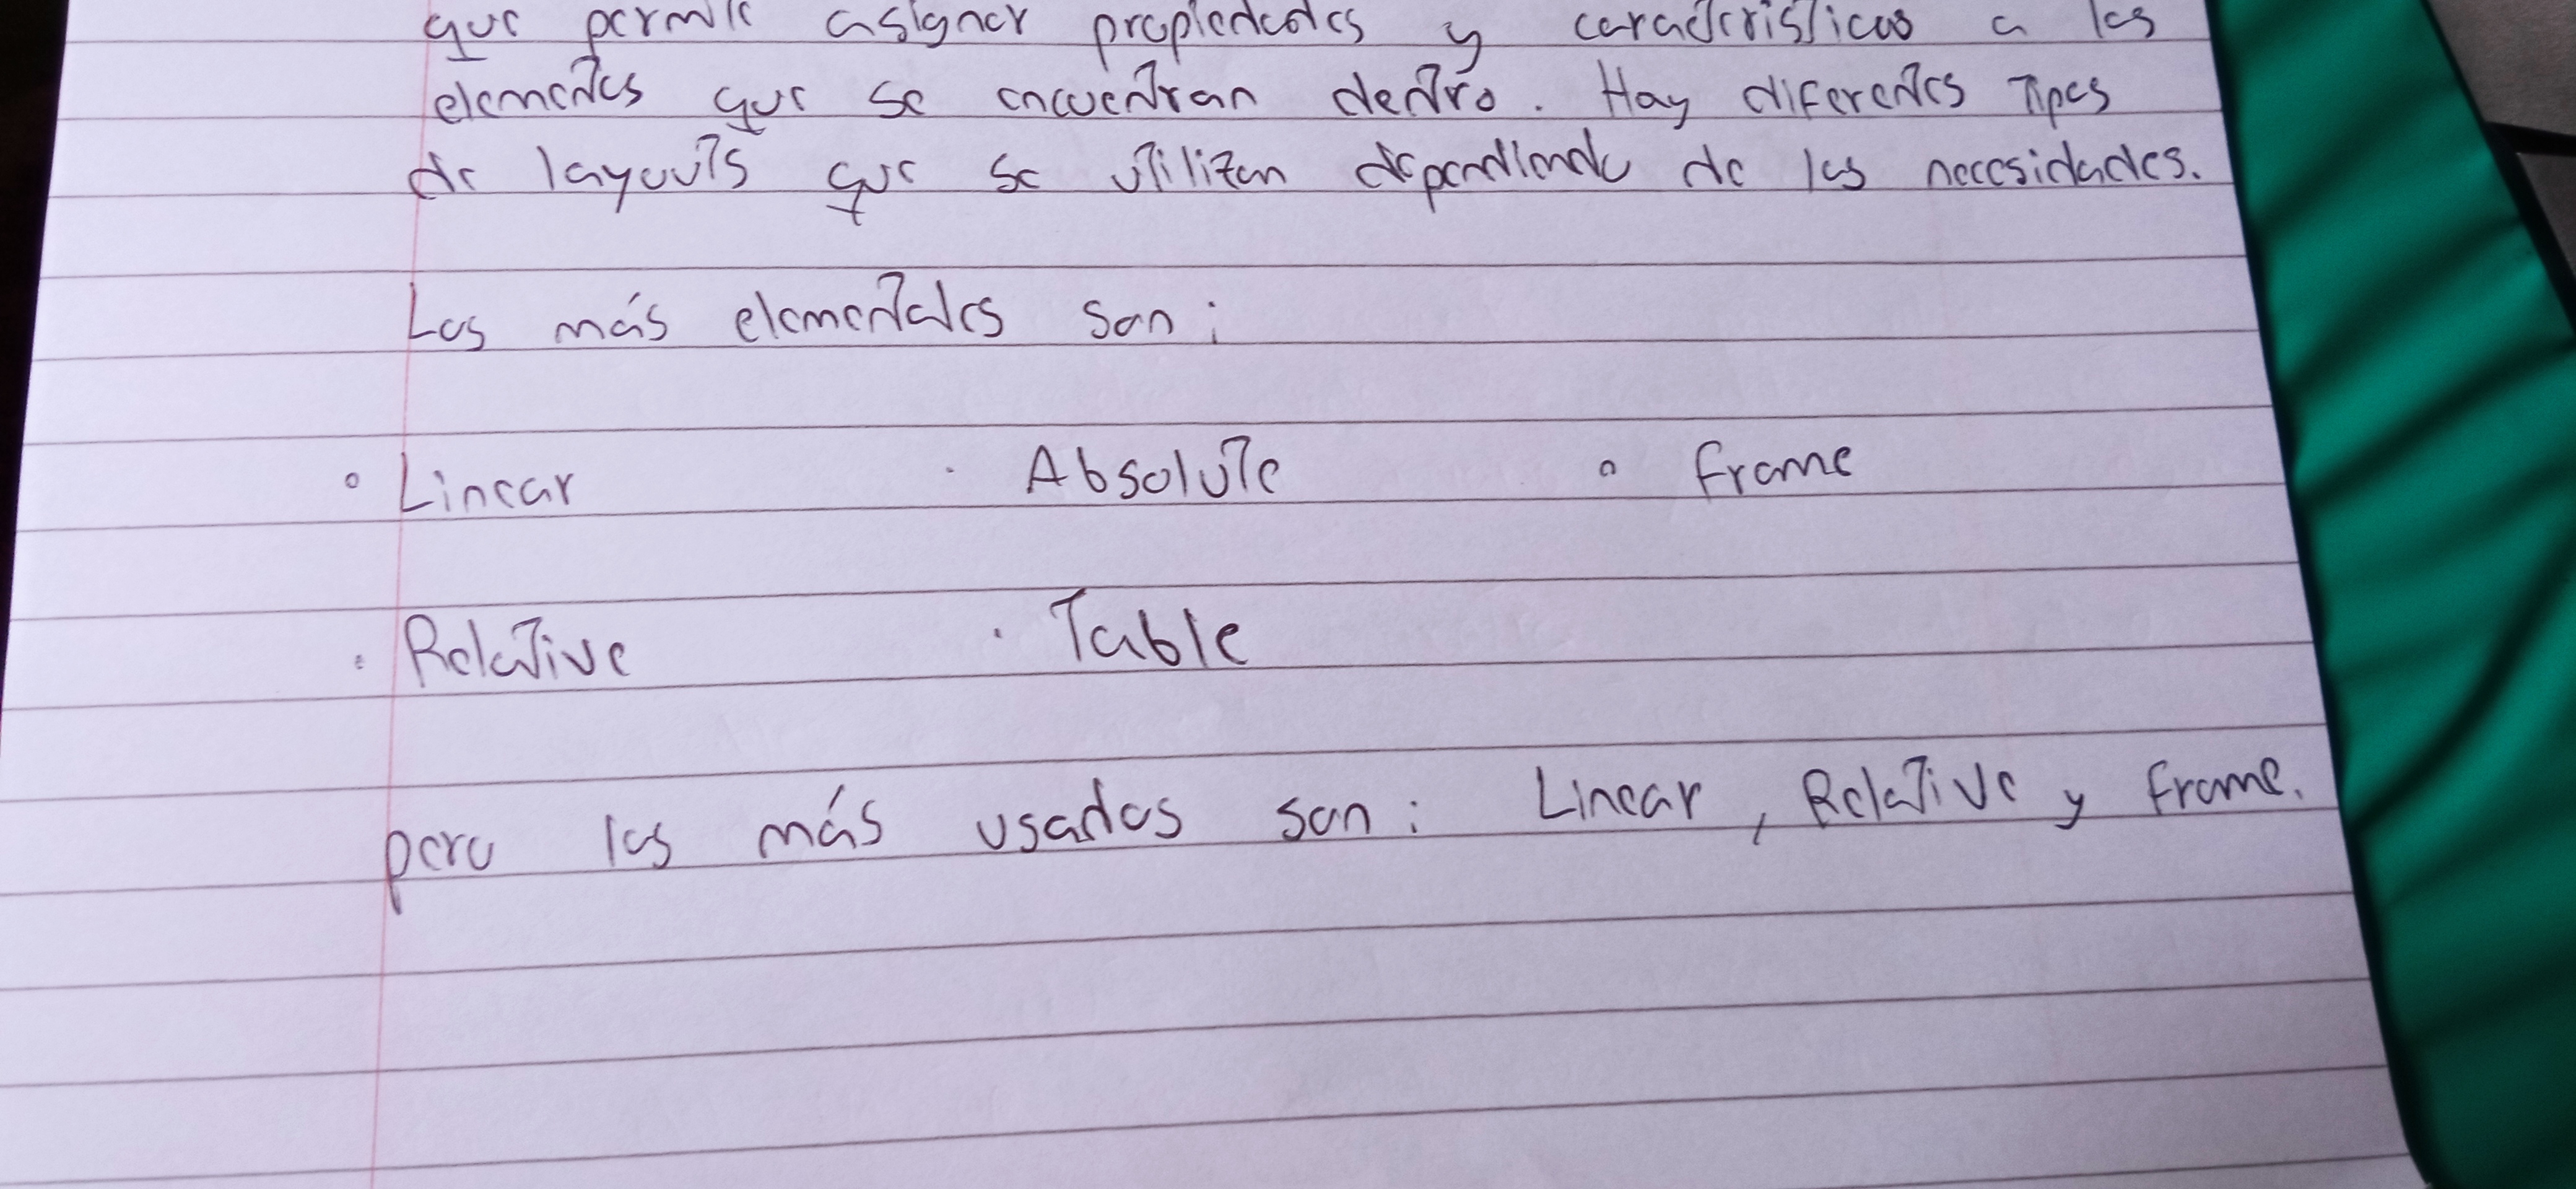 que permite asignar propiedades y características a los
elementos que se encuentran dentro. Hay diferentes Tipos
de layouts que se utilizan dependiendo de las necesidades.
Los más elementales son:
° Linear · Absolute ° Frame
· Relative · Table
pero los más usados son: Linear, Relative y Frame.